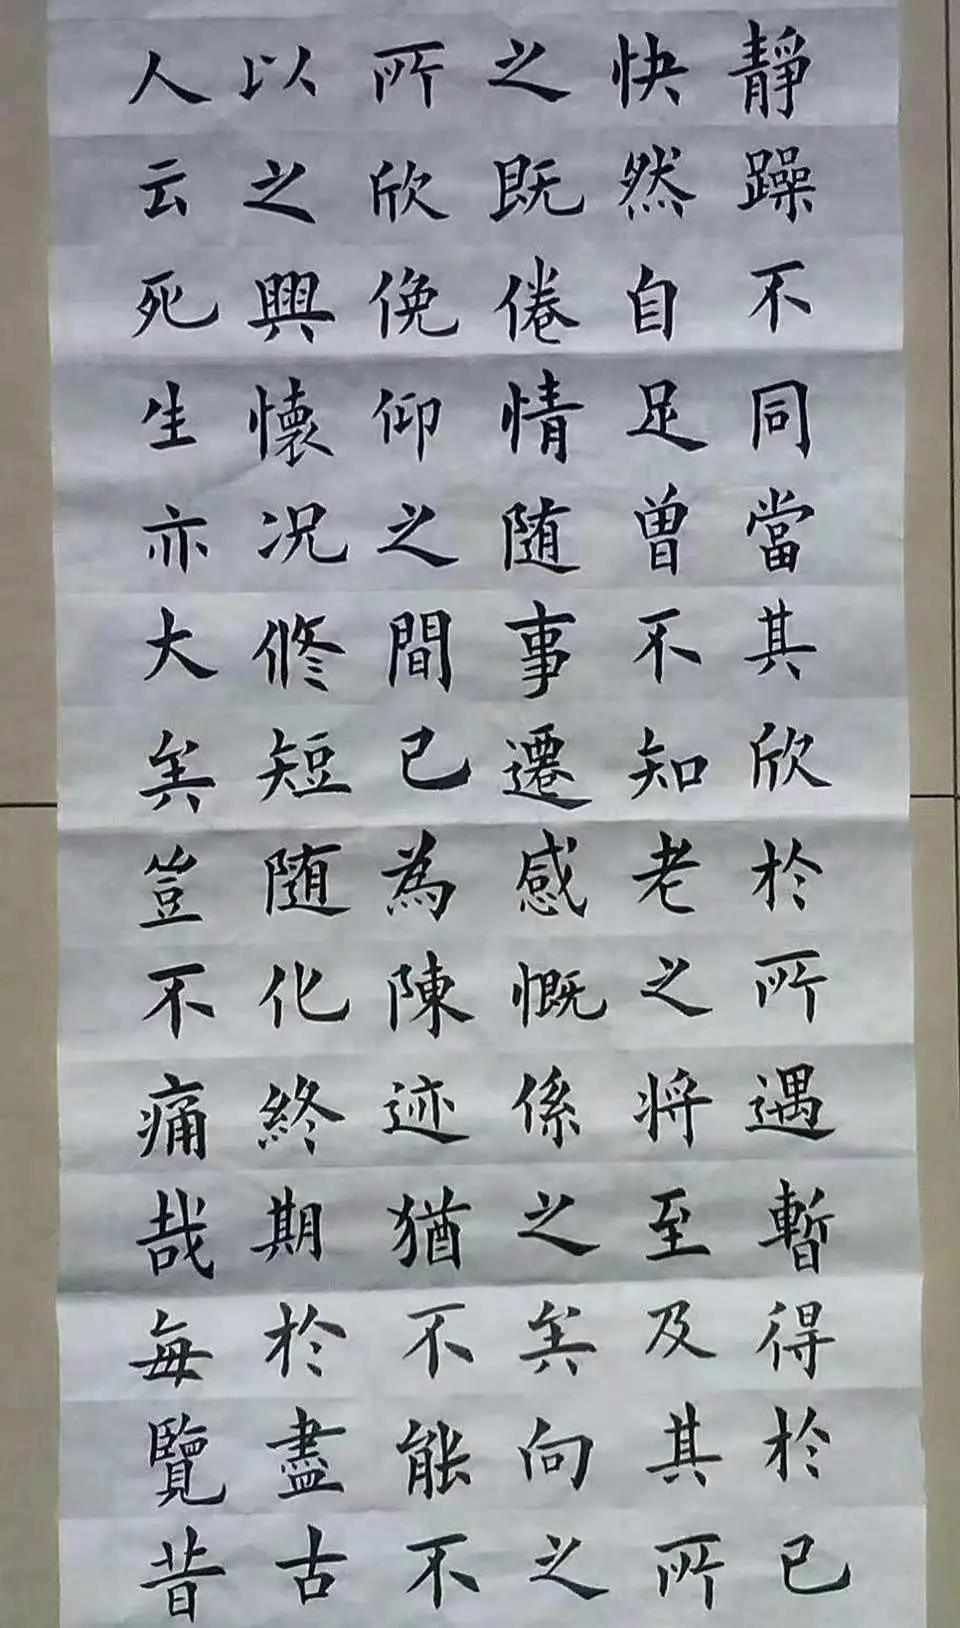 靜躁不同當其欣於所遇暫得於已
快然自足曾不知老之将至及其所
之既倦情随事遷感慨係之矣向之
所欣俛仰之間已為陳迹猶不能不
以之興懷况脩短随化終期於盡古
人云死生亦大矣豈不痛哉每覽昔